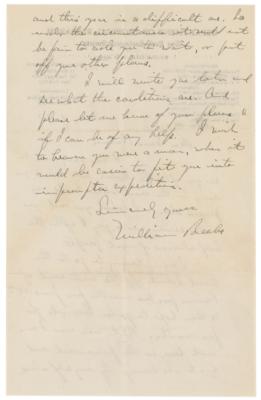 and this year is a difficult one. So
under the circumstances it would not
be fair to ask you to wait, or put
off your other plans.
I will write you later and
see what the conditions are. And
please let me know of your plans &
if I can be of any help. I wish
to heaven you were a man, when it
would be easier to fit you into
impromptu expeditions.
Sincerely yours
William Beebe